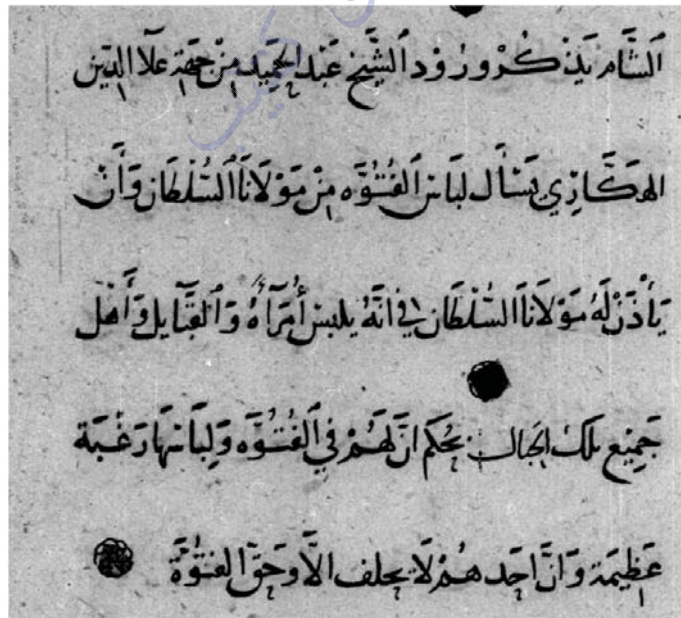 ٱلشَّام يَذْكُرْ وُرُوْد ٱلشَّيْخ عَبْد الحَمِيد مِنْ جِهَة عَلَا الدِّين
الهَكَّارِي يَسْأَل لبَاس ٱلفُتُوَّه مِنْ مَوْلَانَا ٱلسُّلْطَان وَأَنْ
يَأْذَنْ لَهُ مَوْلَانَا السُّلْطَان فِي انَّهُ يلبس أُمَرَآءهُ وَٱلقبَايل وَأَهْل
جَمِيْع تلكَ الجبَال بحُكم انَّ لَهُمْ فِي ٱلفُتُوَّه وَلِبَاسهَا رَغْبَة
عَظِيْمَة وَانَّ احَدهُمْ لَا يحلف الَّا وحَقّ الفتُوَّة